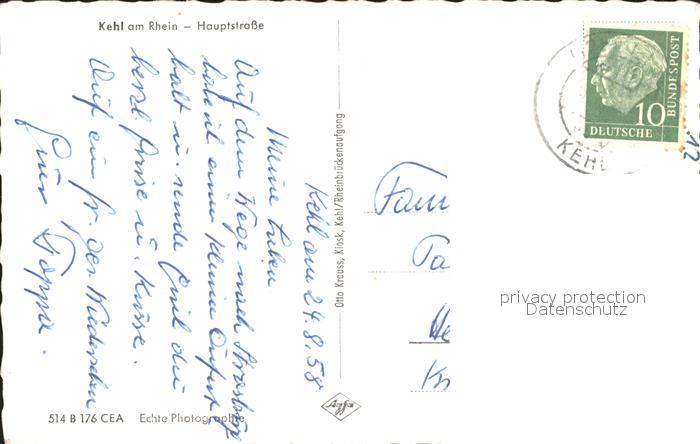 Kehl am Rhein – Hauptstraße
Kehl am 24.8.58
Meine Lieben
Auf dem Wege nach Strassbg
halt u. sende Euch die
herzl. Grüsse u. Küsse.
Auf ein fr. ges. Wiedersehen
Euer
Otto Krauss, Kiosk, Kehl/Rheinbrückenaufgang
Agfa
514 B 176 CEA Echte Photographie
10
DEUTSCHE
BUNDESPOST
KEHL
12
Fam
privacy protection
Datenschutz